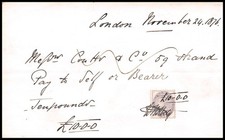 London November 24. 1876
Messrs Coutts & Co 59 Strand
Pay to Self or Bearer
Ten pounds
£10.0.0
£10.0.0